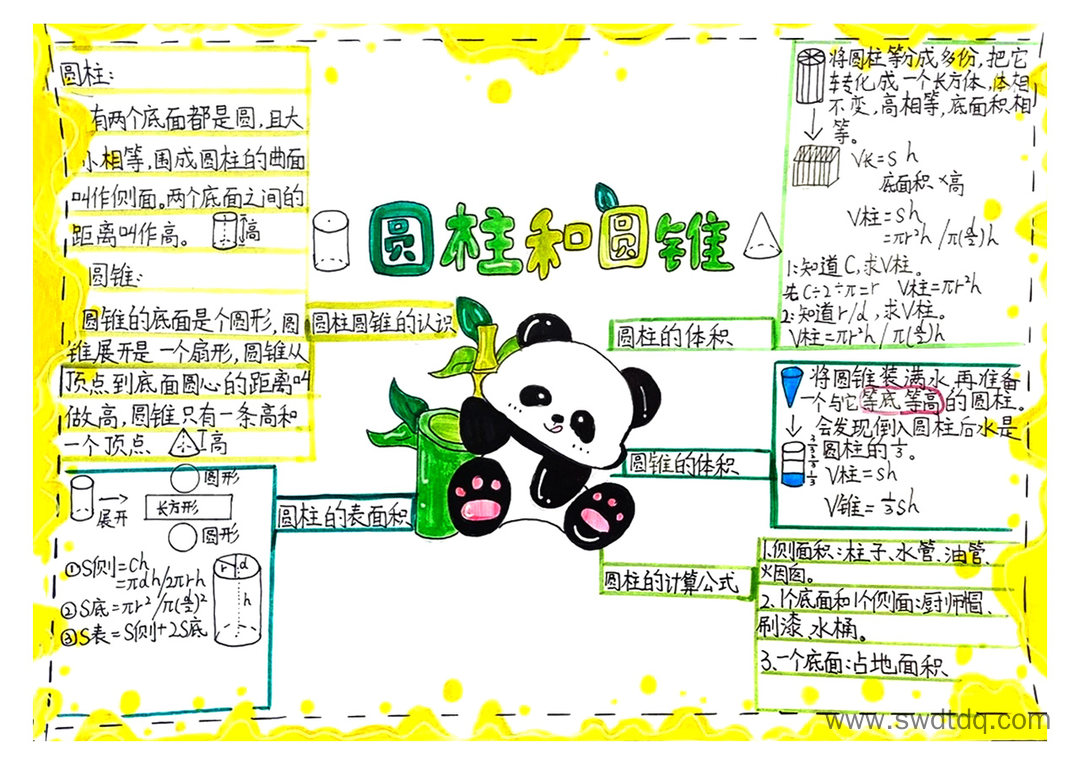 圆柱和圆锥
圆柱:
有两个底面都是圆,且大
小相等,围成圆柱的曲面
叫作侧面。两个底面之间的
距离叫作高。
高
圆锥:
圆锥的底面是个圆形,圆
锥展开是一个扇形,圆锥从
顶点到底面圆心的距离叫
做高,圆锥只有一条高和
一个顶点
高
圆柱圆锥的认识
圆柱的表面积
展开
圆形
长方形
圆形
①S侧=Ch
=πdh/2πrh
②S底=πr²/π(d/2)²
③S表=S侧+2S底
r d
h
圆柱的体积
将圆柱等分成多份,把它
转化成一个长方体,体相
不变,高相等,底面积相
等。
V长=sh
底面积×高
V柱=sh
=πr²h/π(d/2)h
1:知道C,求V柱。
先C÷2÷π=r V柱=πr²h
2:知道r/d,求V柱。
V柱=πr²h/π(d/2)h
圆锥的体积
将圆锥装满水,再准备
一个与它等底等高的圆柱。
会发现倒入圆柱后水是
圆柱的1/3。
1/3
V柱=sh
V锥=1/3sh
圆柱的计算公式
1.侧面积:柱子、水管、油管、
烟囱。
2、1个底面和1个侧面:厨师帽、
刷漆、水桶。
3、一个底面:占地面积
www.swdtdq.com